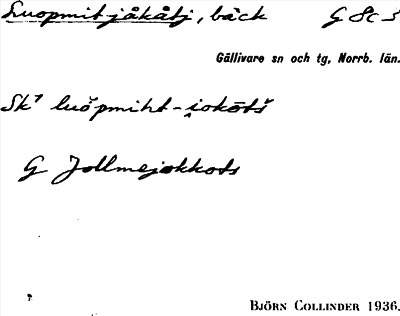 Luopmitjåkåtj, bäck G 8c5
Gällivare sn och tg, Norrb. län.
Sk⁷ luŏpmiht-i̯okātš
G Jollmejokkots
BJÖRN COLLINDER 1936.